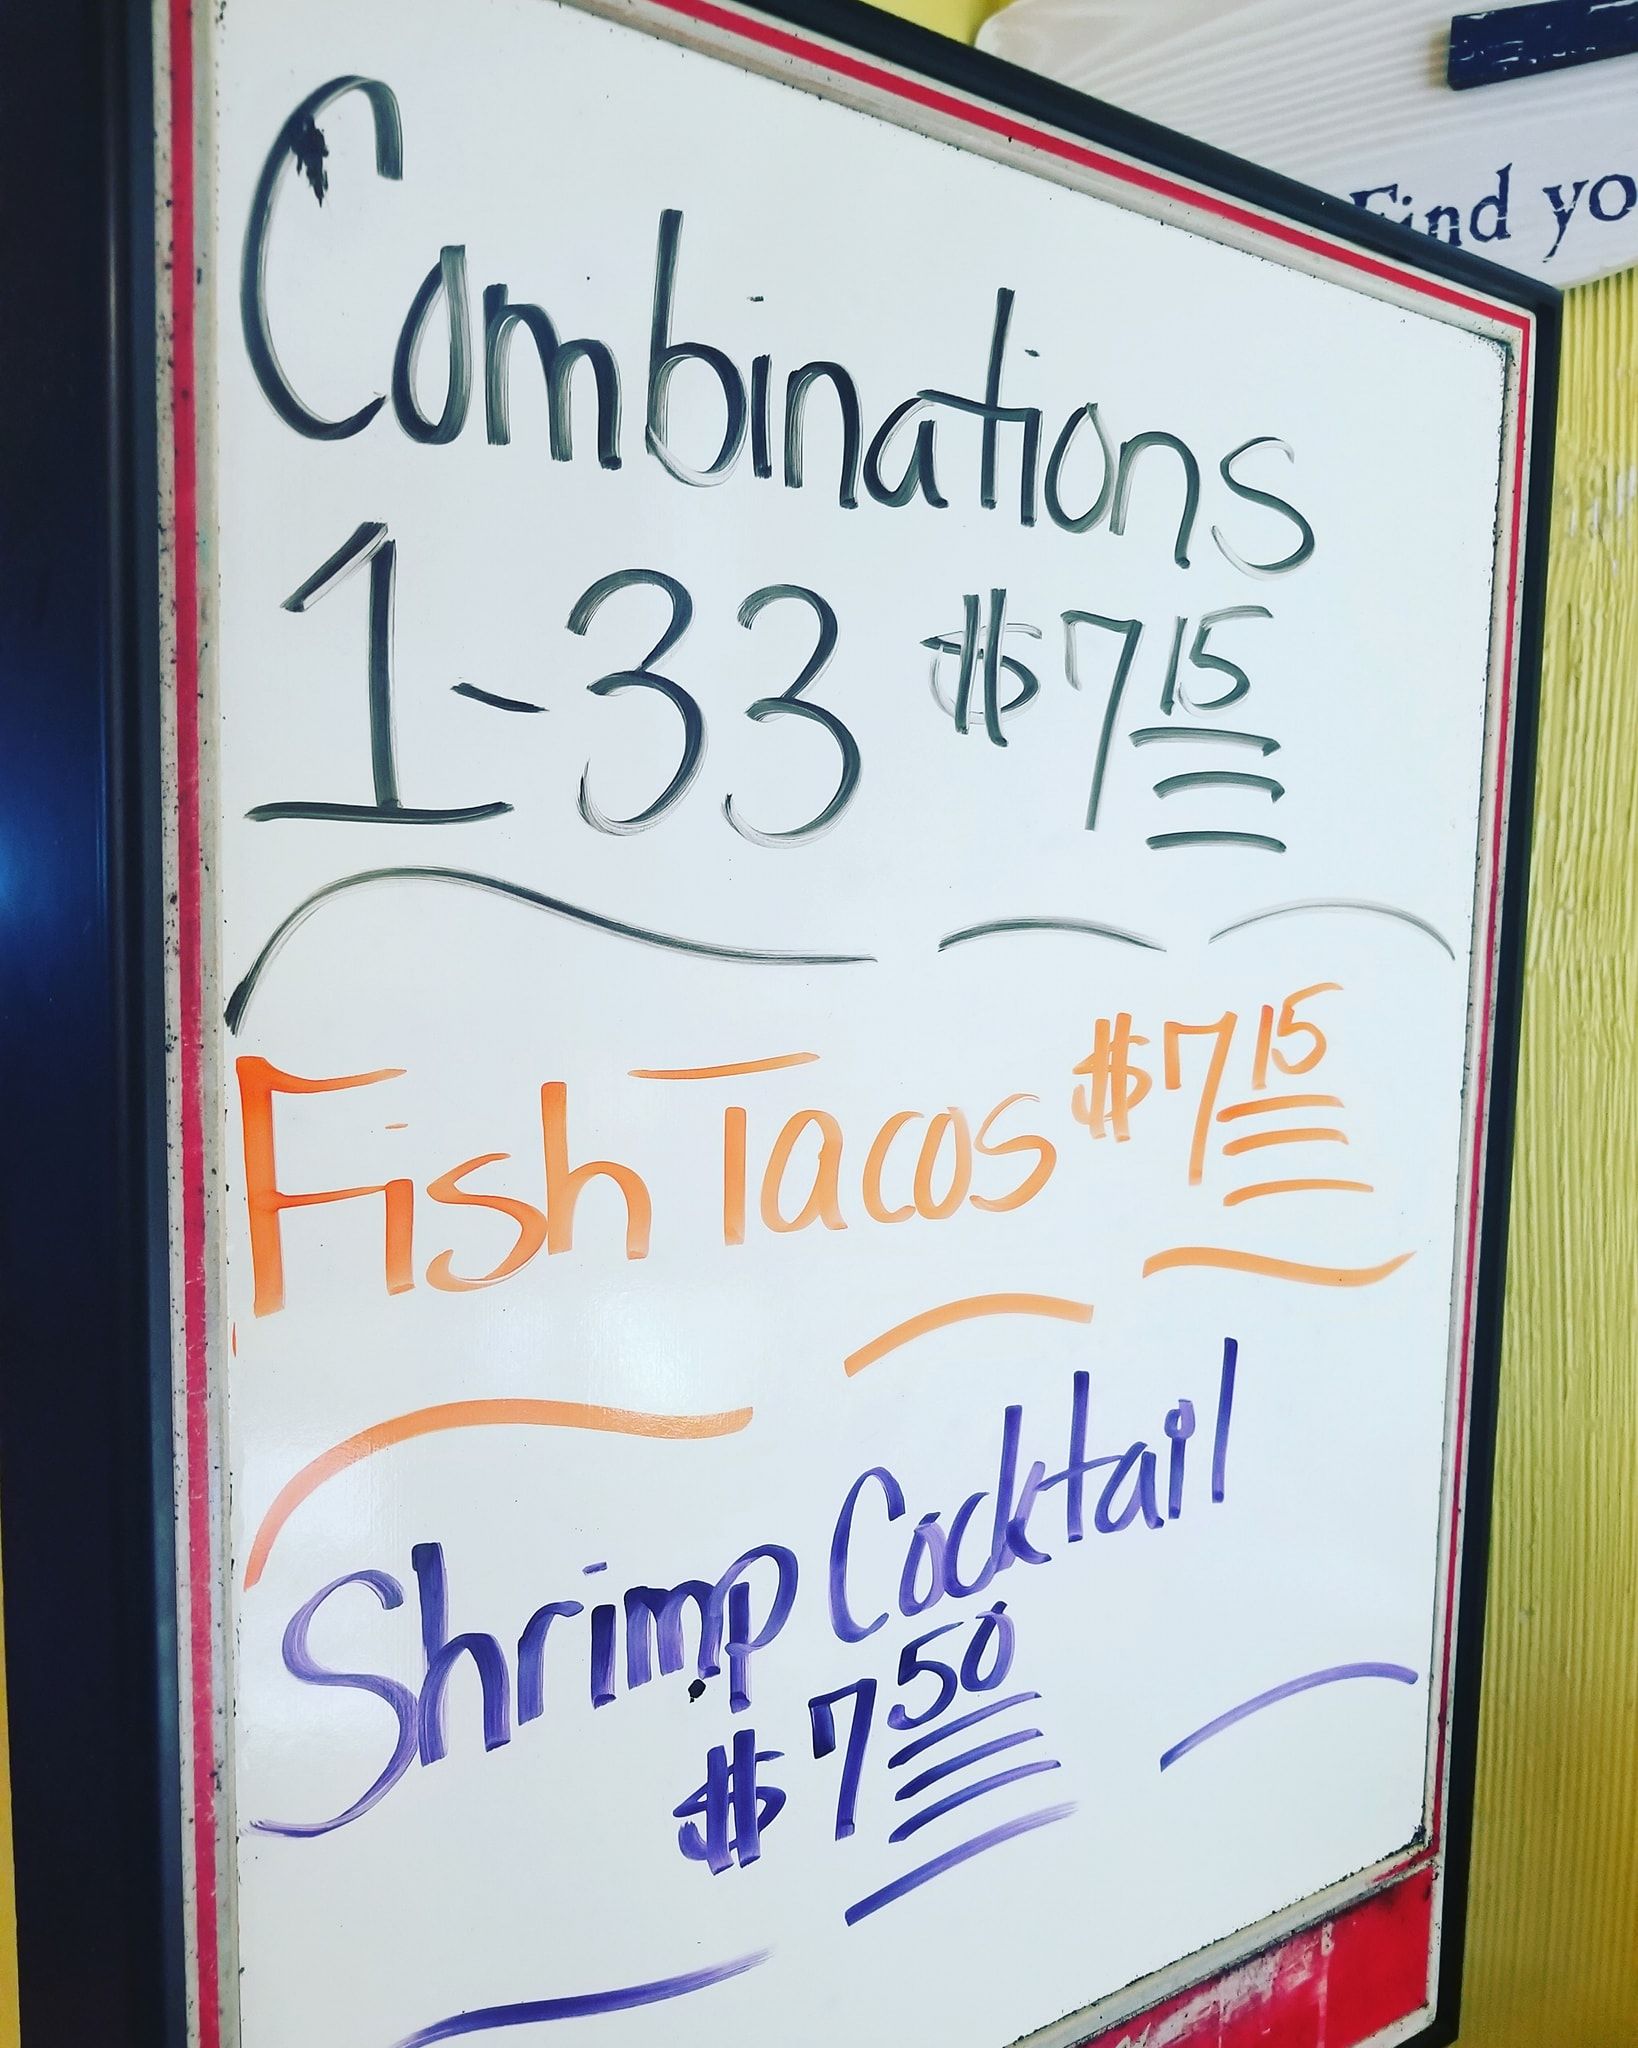 Combinations
1-33 $7 15
Fish Tacos $7 15
Shrimp Cocktail
$7 50
Find yo